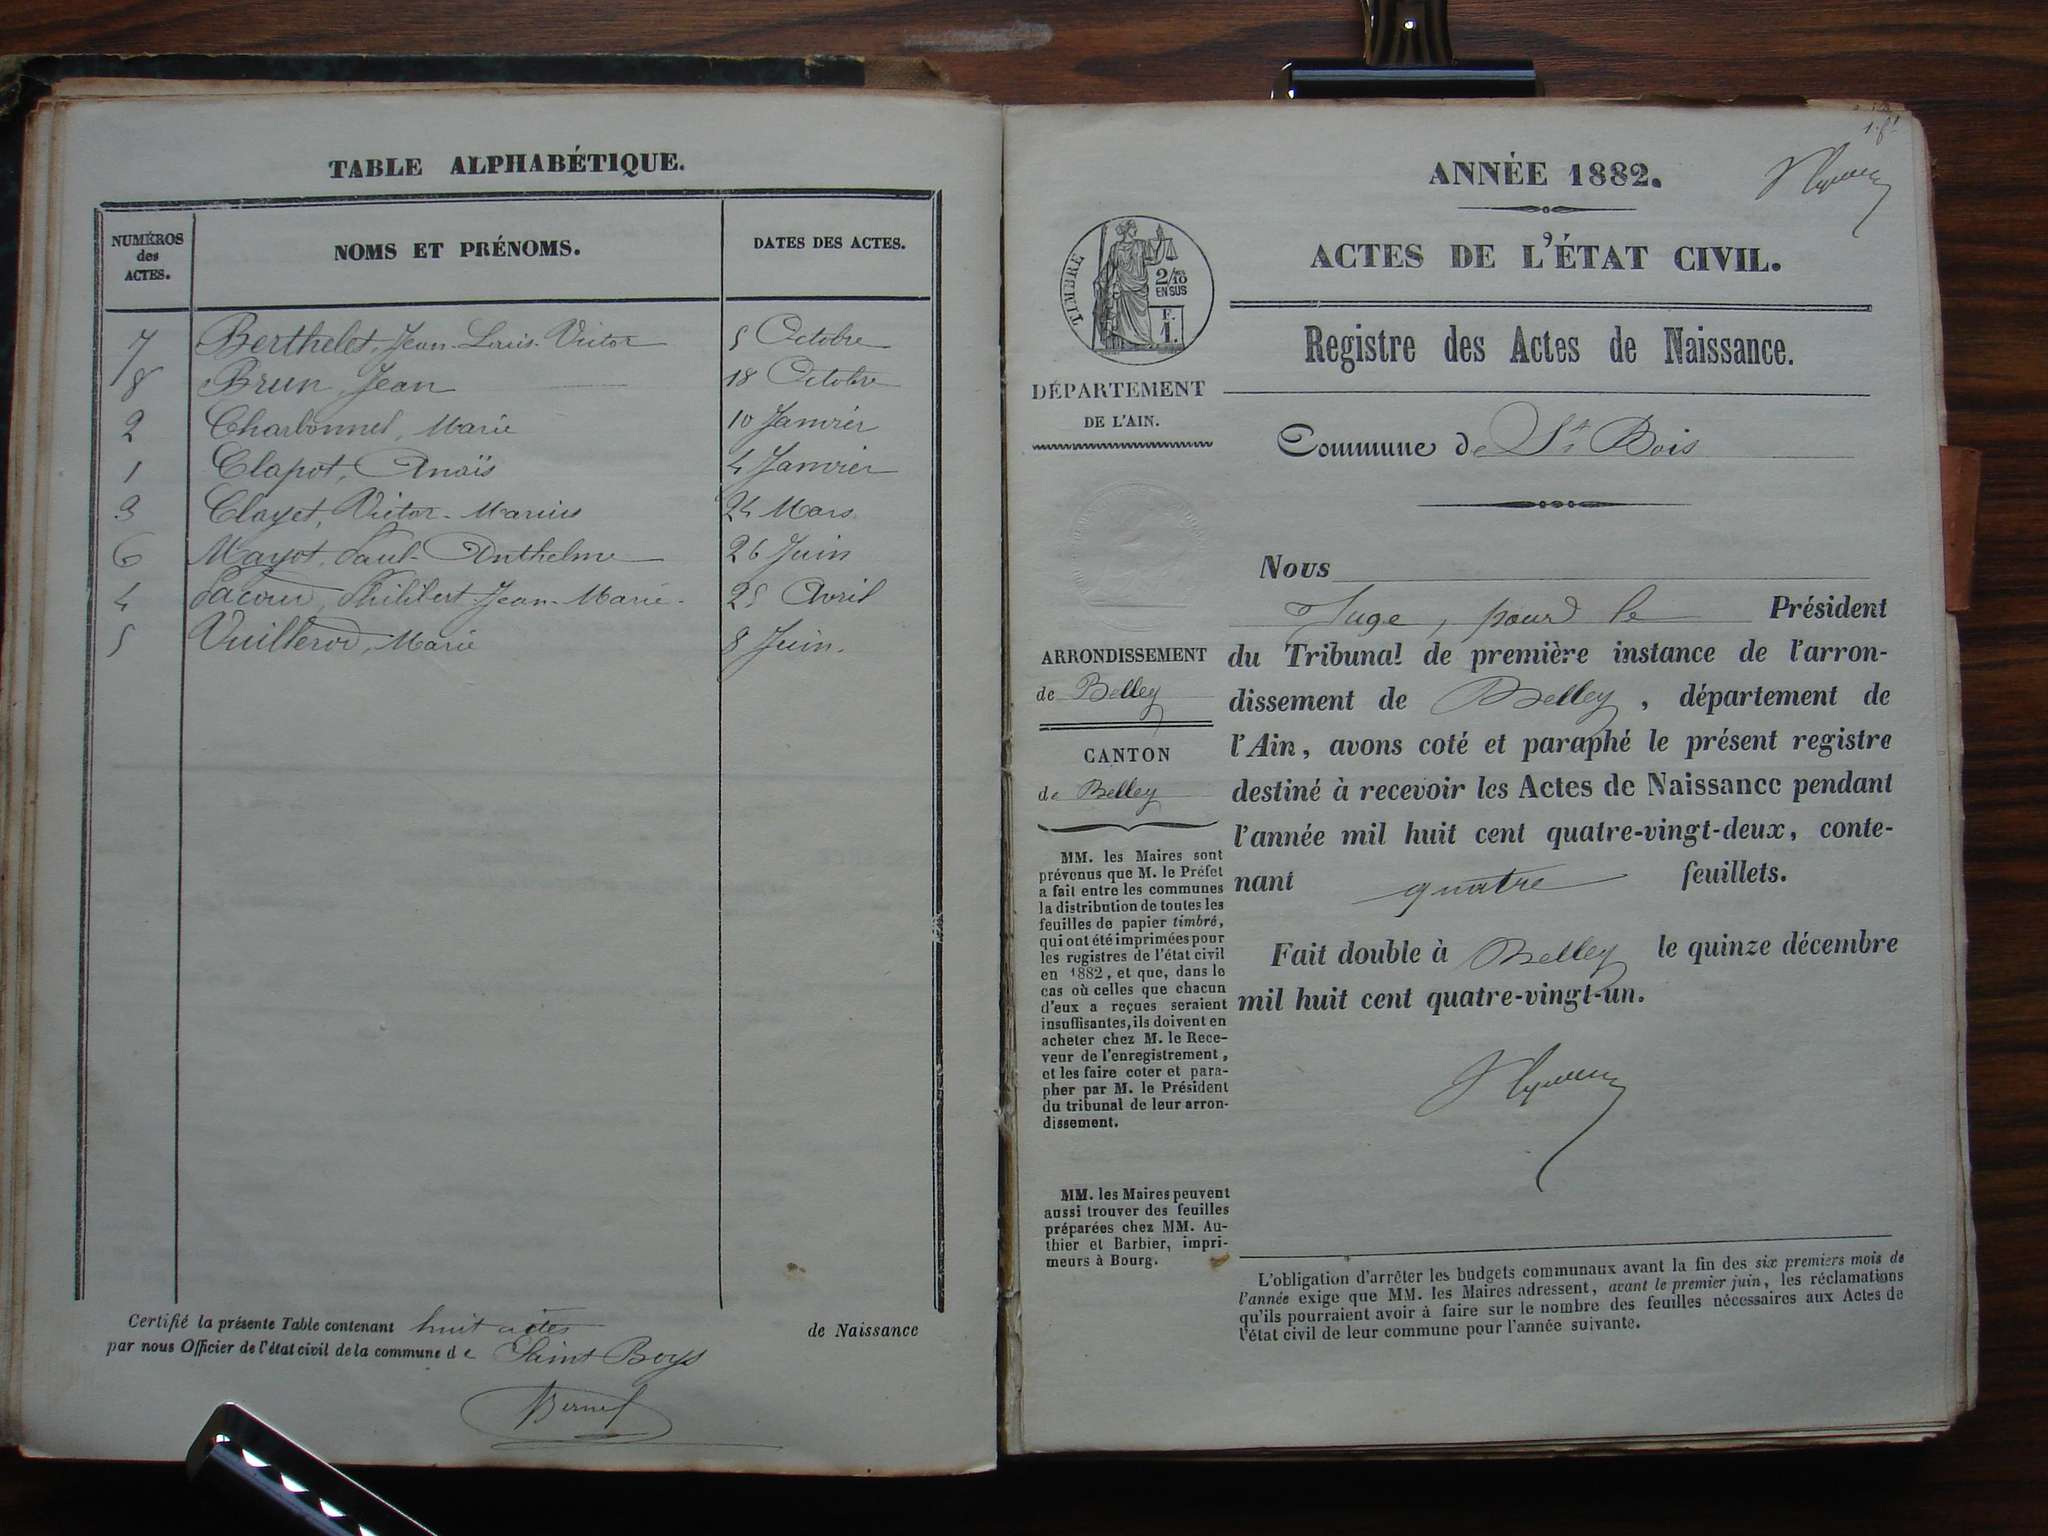 TABLE ALPHABÉTIQUE.
NUMÉROS des ACTES.
NOMS ET PRÉNOMS.
DATES DES ACTES.
7 Berthelet, Jean-Louis-Victor 5 Octobre
8 Brun, Jean 18 Octobre
2 Charbonnet, Marie 10 Janvier
1 Clapot, Anaïs 4 Janvier
3 Clayet, Victor-Marius 24 Mars
6 Mayot, Paul-Anthelme 26 Juin
4 Philibert Jean-Marie 25 Avril
5 Vuillerod, Marie 8 Juin.
Certifié la présente Table contenant huit actes de Naissance
par nous Officier de l'état civil de la commune de Saint Boys
ANNÉE 1882.
ACTES DE L'ÉTAT CIVIL.
Registre des Actes de Naissance.
TIMBRE
2/10 EN SUS
F. 1.
DÉPARTEMENT
DE L'AIN.
Commune de St Bois
ARRONDISSEMENT
de Belley
CANTON
de Belley
MM. les Maires sont
prévenus que M. le Préfet
a fait entre les communes
la distribution de toutes les
feuilles de papier timbré,
qui ont été imprimées pour
les registres de l'état civil
en 1882, et que, dans le
cas où celles que chacun
d'eux a reçues seraient
insuffisantes, ils doivent en
acheter chez M. le Rece-
veur de l'enregistrement,
et les faire coter et para-
pher par M. le Président
du tribunal de leur arron-
dissement.
MM. les Maires peuvent
aussi trouver des feuilles
préparées chez MM. Au-
thier et Barbier, impri-
meurs à Bourg.
Nous
Juge, pour le Président
du Tribunal de première instance de l'arron-
dissement de Belley, département de
l'Ain, avons coté et paraphé le présent registre
destiné à recevoir les Actes de Naissance pendant
l'année mil huit cent quatre-vingt-deux, conte-
nant quatre feuillets.
Fait double à Belley le quinze décembre
mil huit cent quatre-vingt-un.
L'obligation d'arrêter les budgets communaux avant la fin des six premiers mois de
l'année exige que MM. les Maires adressent, avant le premier juin, les réclamations
qu'ils pourraient avoir à faire sur le nombre des feuilles nécessaires aux Actes de
l'état civil de leur commune pour l'année suivante.